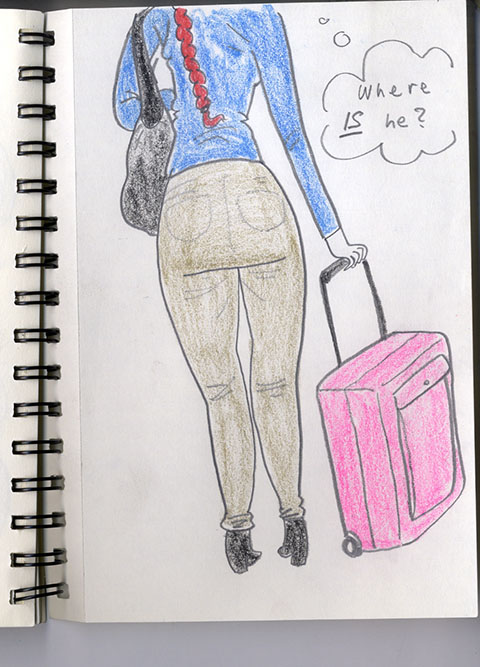 Where
IS he?